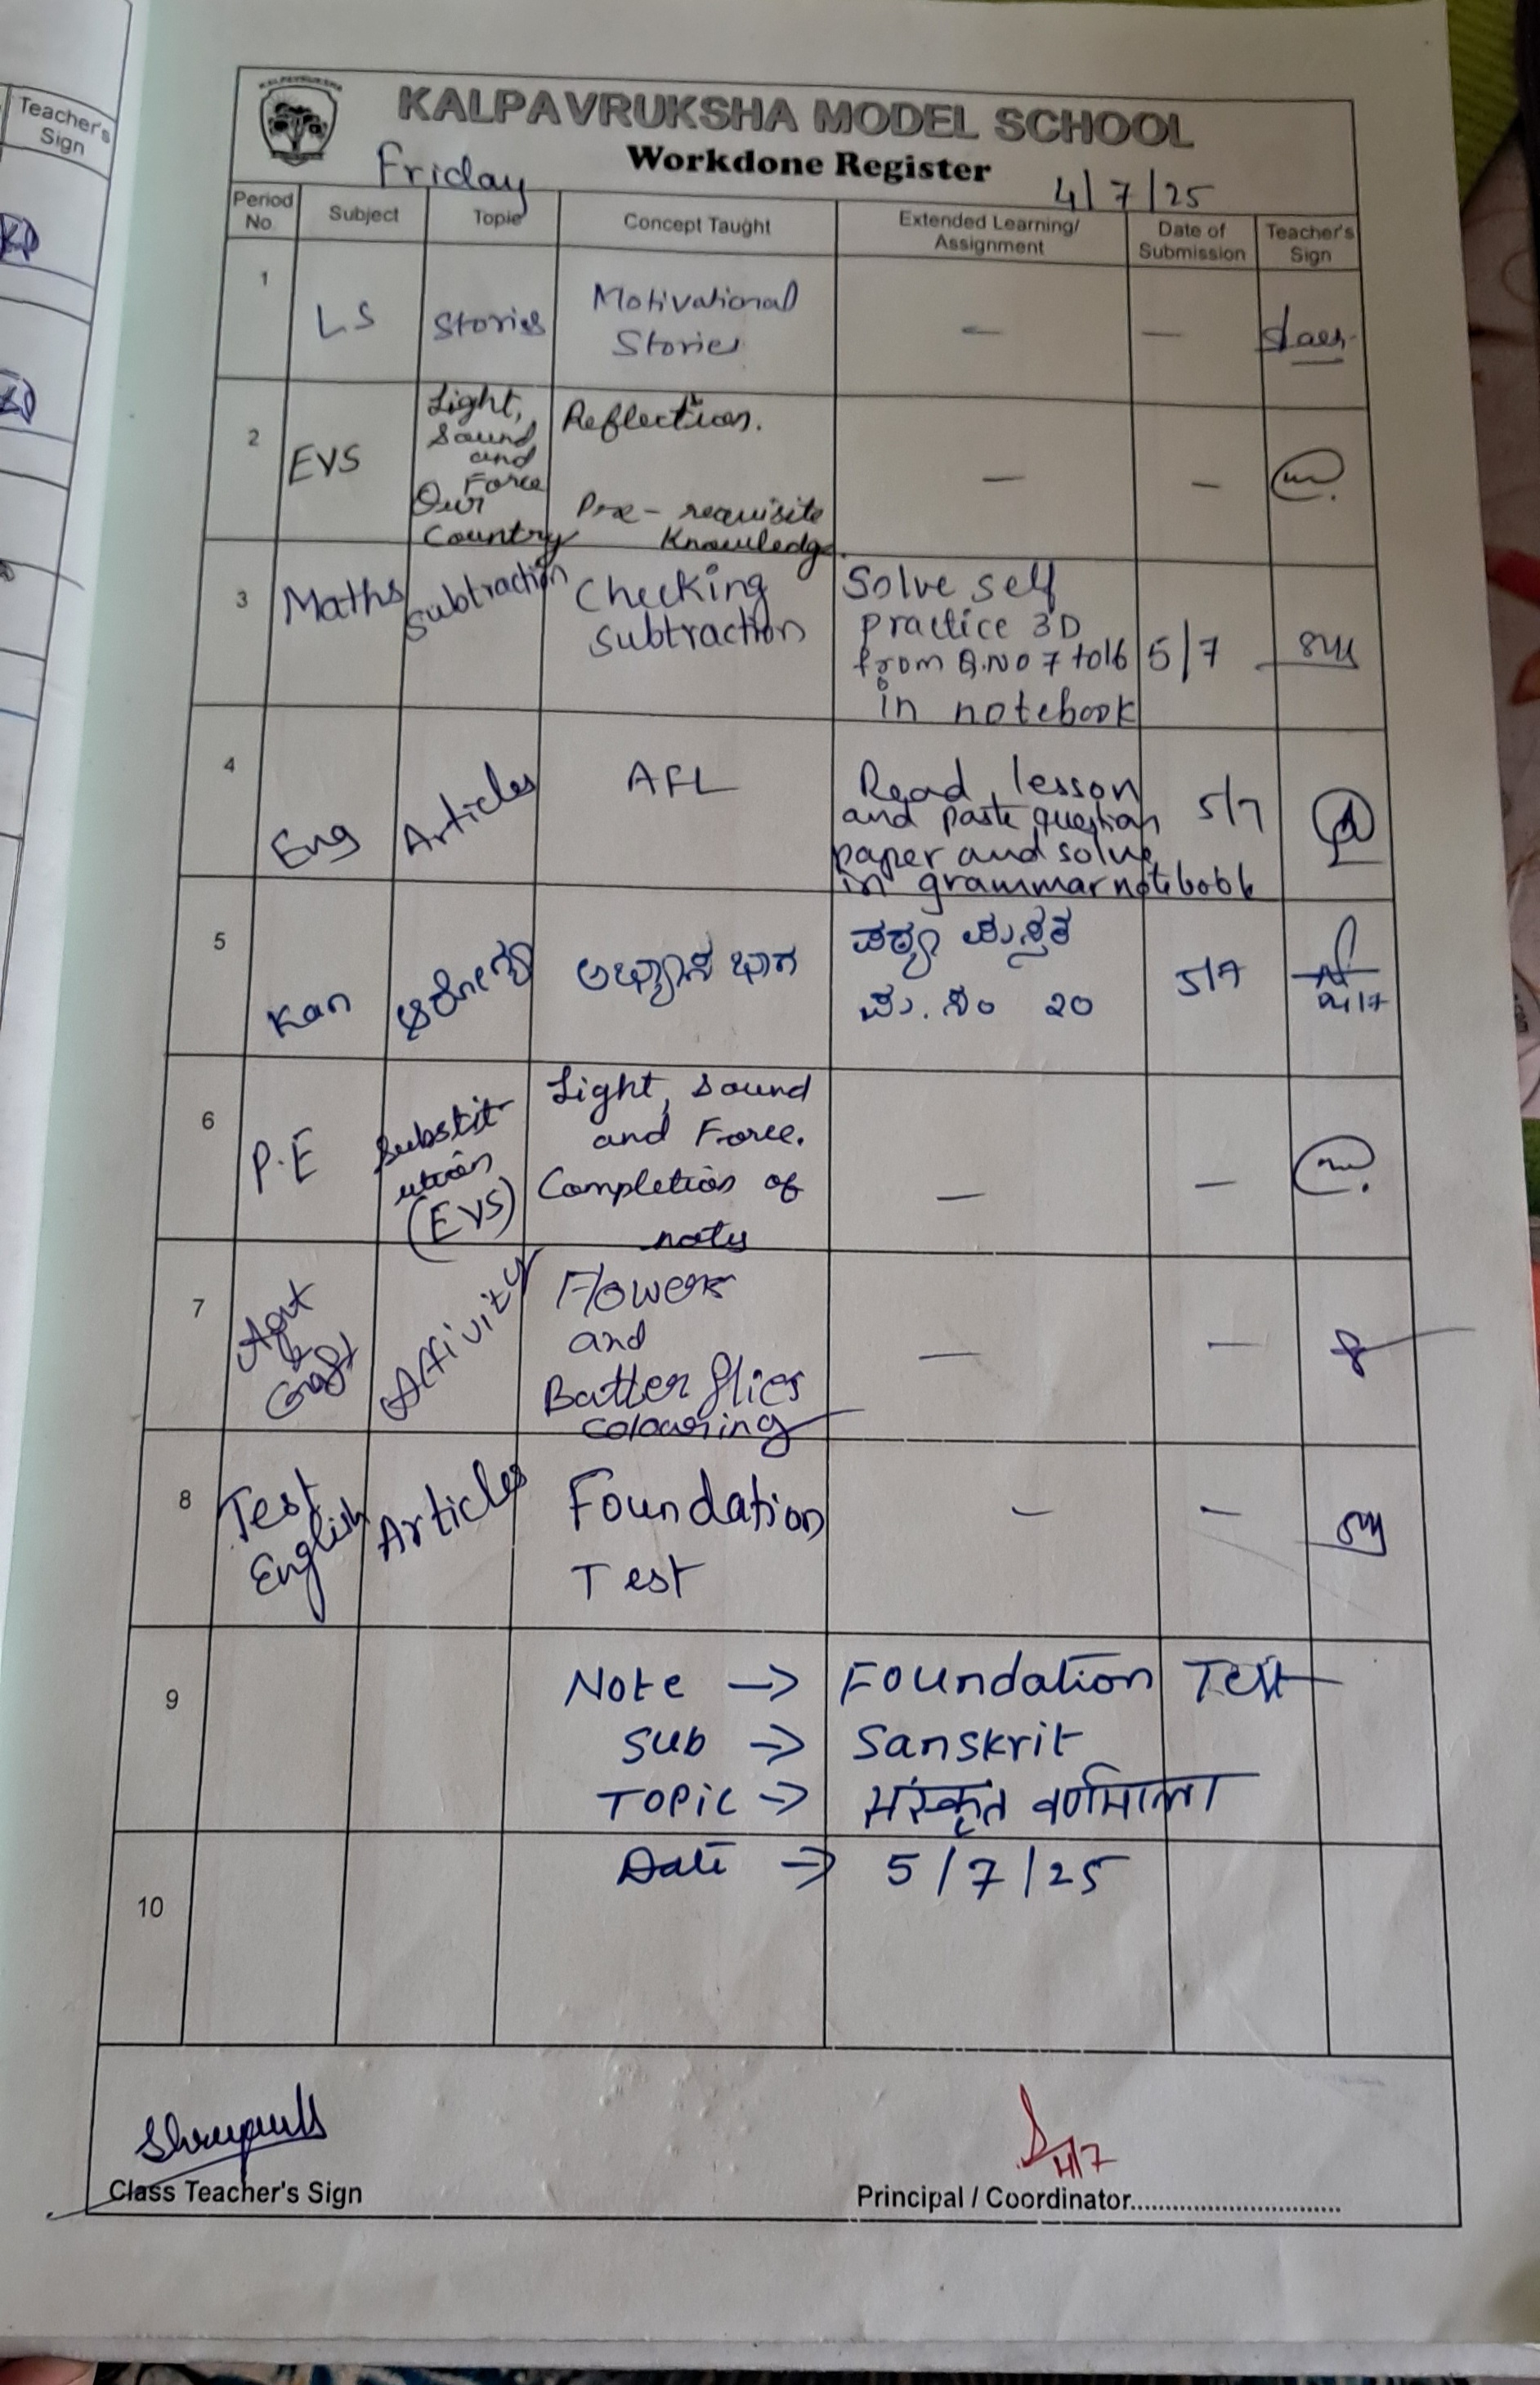 Teacher's
Sign
KALPAVRUKSHA
KALPAVRUKSHA MODEL SCHOOL
Workdone Register
Friday
4/7/25
Period
No.
Subject
Topic
Concept Taught
Extended Learning/
Assignment
Date of
Submission
Teacher's
Sign
1
LS
Stories
Motivational
Stories
—
—
2
EVS
Light,
Sound
and
Force
Our
Country
Reflection.
Pre-requisite
Knowledge.
—
—
3
Maths
Subtraction
Checking
subtraction
Solve self
practice 3D
from Q.NO 7 to 16
in notebook
5/7
4
Eng
Articles
AFL
Read lesson
and paste question
paper and solve
in grammar notebook
5/7
5
Kan
ಆರೋಗ್ಯ
ಅಭ್ಯಾಸ ಭಾಗ
ಪಠ್ಯ ಪುಸ್ತಕ
ಪು. ಸಂ ೨೦
5/7
4/7
6
P.E
Substit-
ution
(EVS)
Light, Sound
and Force.
Completion of
notes
—
—
7
Art
&
Craft
Activity
Flowers
and
Butterflies
colouring
—
—
8
Test
English
Articles
Foundation
Test
—
—
9
Note → Foundation Test
Sub → Sanskrit
TOPIC → संस्कृत वर्णमाला
10
Date → 5/7/25
4/7
Class Teacher's Sign
Principal / Coordinator..............................